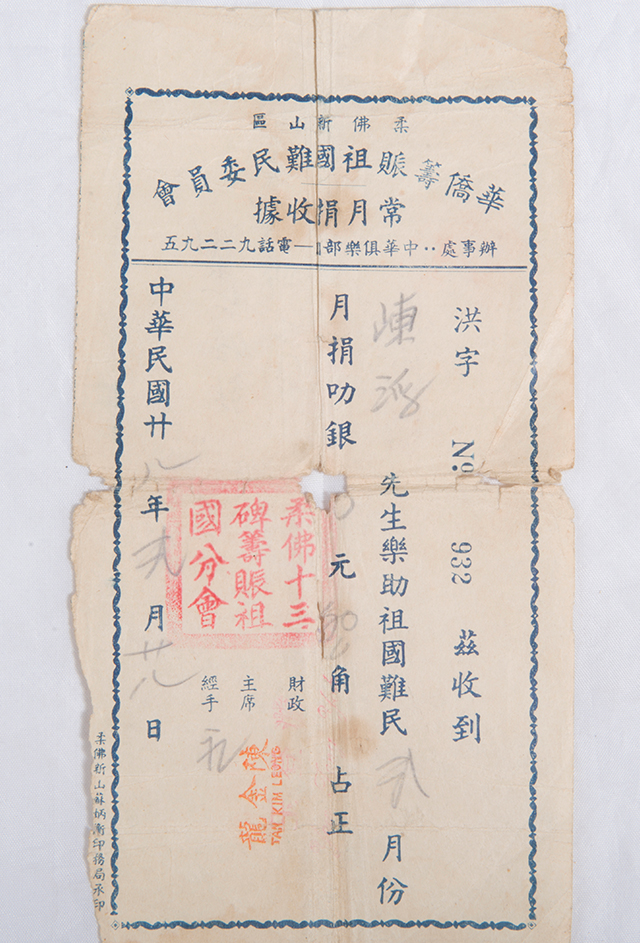 柔佛新山區
華僑籌賑祖國難民委員會
常月捐收據
辦事處：中華俱樂部 — 電話九二二九五
洪字 No. 932 茲收到
陳 先生樂助祖國難民 弍 月份
月捐叻銀 元 角 占正
財政
主席 陳金龍
TAN KIM LEONG
經手
柔佛十三
碑籌賑祖
國分會
中華民國廿九年弍月廿八日
柔佛新山蘇炳衡印務局承印